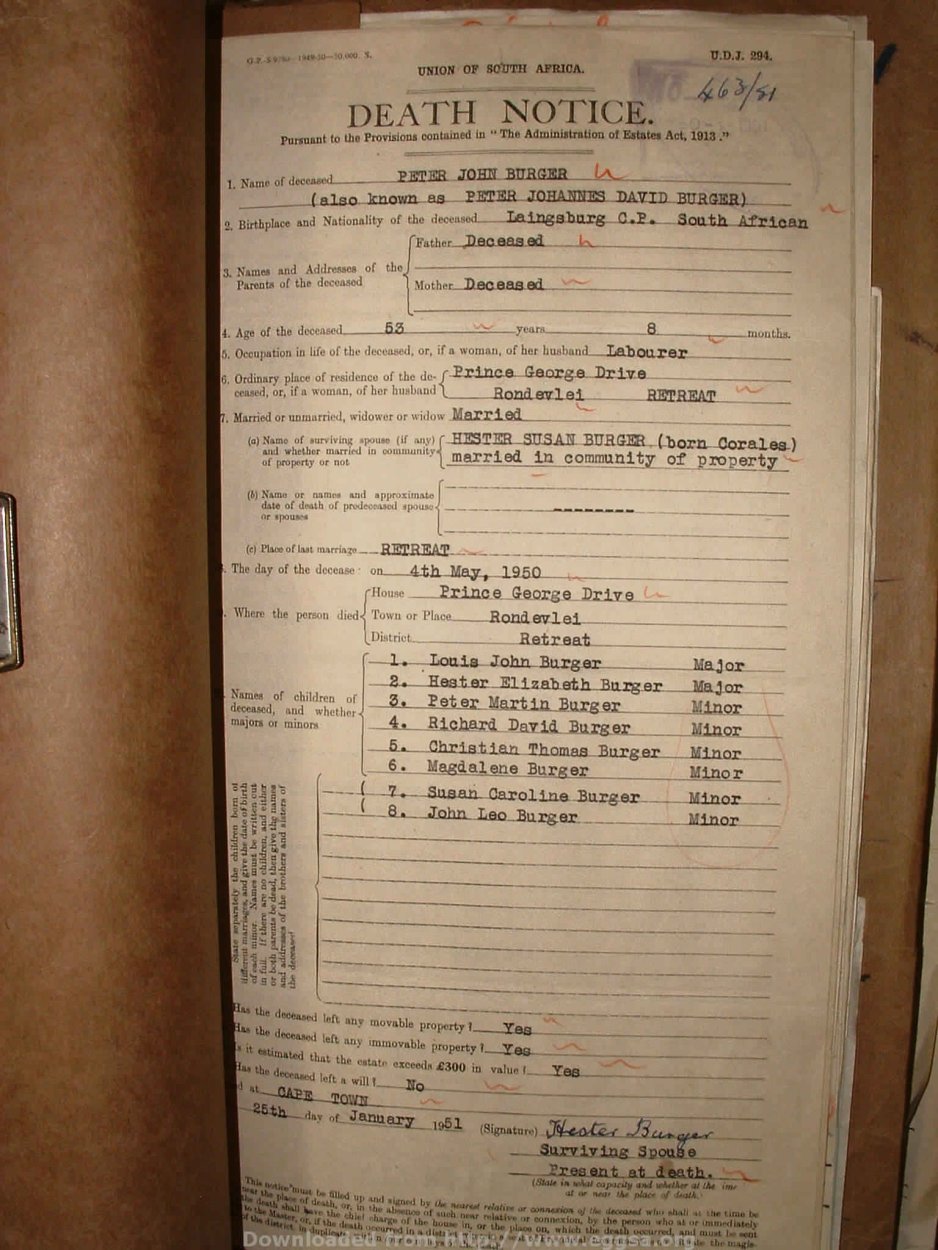 U.D.J. 294.
UNION OF SOUTH AFRICA.
463/51
DEATH NOTICE.
Pursuant to the Provisions contained in "The Administration of Estates Act, 1913."
1. Name of deceased PETER JOHN BURGER
(also known as PETER JOHANNES DAVID BURGER)
2. Birthplace and Nationality of the deceased Laingsburg C.P. South African
3. Names and Addresses of the Parents of the deceased
Father Deceased
Mother Deceased
4. Age of the deceased 53 years 8 months.
5. Occupation in life of the deceased, or, if a woman, of her husband Labourer
6. Ordinary place of residence of the de- Prince George Drive
ceased, or, if a woman, of her husband Rondevlei RETREAT
7. Married or unmarried, widower or widow Married
(a) Name of surviving spouse (if any) HESTER SUSAN BURGER (born Corales)
and whether married in community married in community of property
of property or not
(b) Name or names and approximate
date of death of predeceased spouse --------
or spouses
(c) Place of last marriage RETREAT
. The day of the decease on 4th May, 1950
House Prince George Drive
. Where the person died Town or Place Rondevlei
District Retreat
Names of children of
deceased, and whether
majors or minors
1. Louis John Burger Major
2. Hester Elizabeth Burger Major
3. Peter Martin Burger Minor
4. Richard David Burger Minor
5. Christian Thomas Burger Minor
6. Magdalene Burger Minor
7. Susan Caroline Burger Minor
8. John Leo Burger Minor
State separately the children born of
different marriages, and give the date of birth
of each minor. Names must be written out
in full. If there are no children, and either
or both parents be dead, then give the names
and addresses of the brothers and sisters of
the deceased
Has the deceased left any movable property? Yes
Has the deceased left any immovable property? Yes
s it estimated that the estate exceeds £300 in value? Yes
Has the deceased left a will? No
d at CAPE TOWN
25th day of January 1951 (Signature) Hester Burger
Surviving Spouse
Present at death.
(State in what capacity and whether at the ime
at or near the place of death.
This notice must be filled up and signed by the nearest relative or connexion of the deceased who shall at the time be
near the place of death, or, in the absence of such near relative or connexion, by the person who at or immediately
the death shall have the chief charge of the house in, or the place on, which the death occurred, and must be sent
to the Master, or, if the death occurred in a
of the district, in duplicate
Downloaded from http://www.eggsa.org